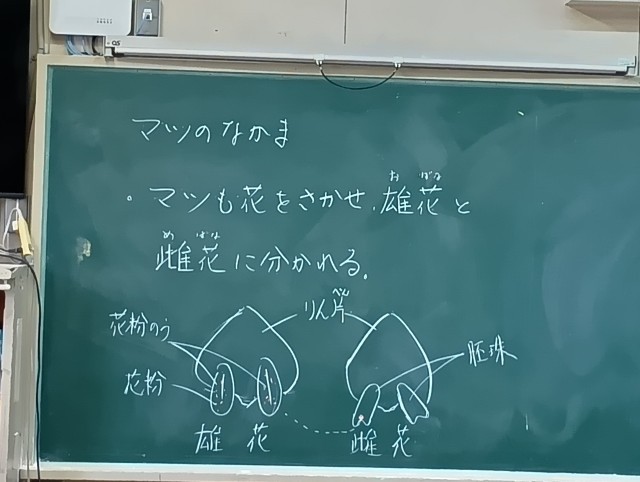 マツのなかま
・マツも花をさかせ、雄花と
お ばな
雌花に分かれる。
め ばな
りん片
べん
花粉のう
花粉
胚珠
雄 花
雌 花